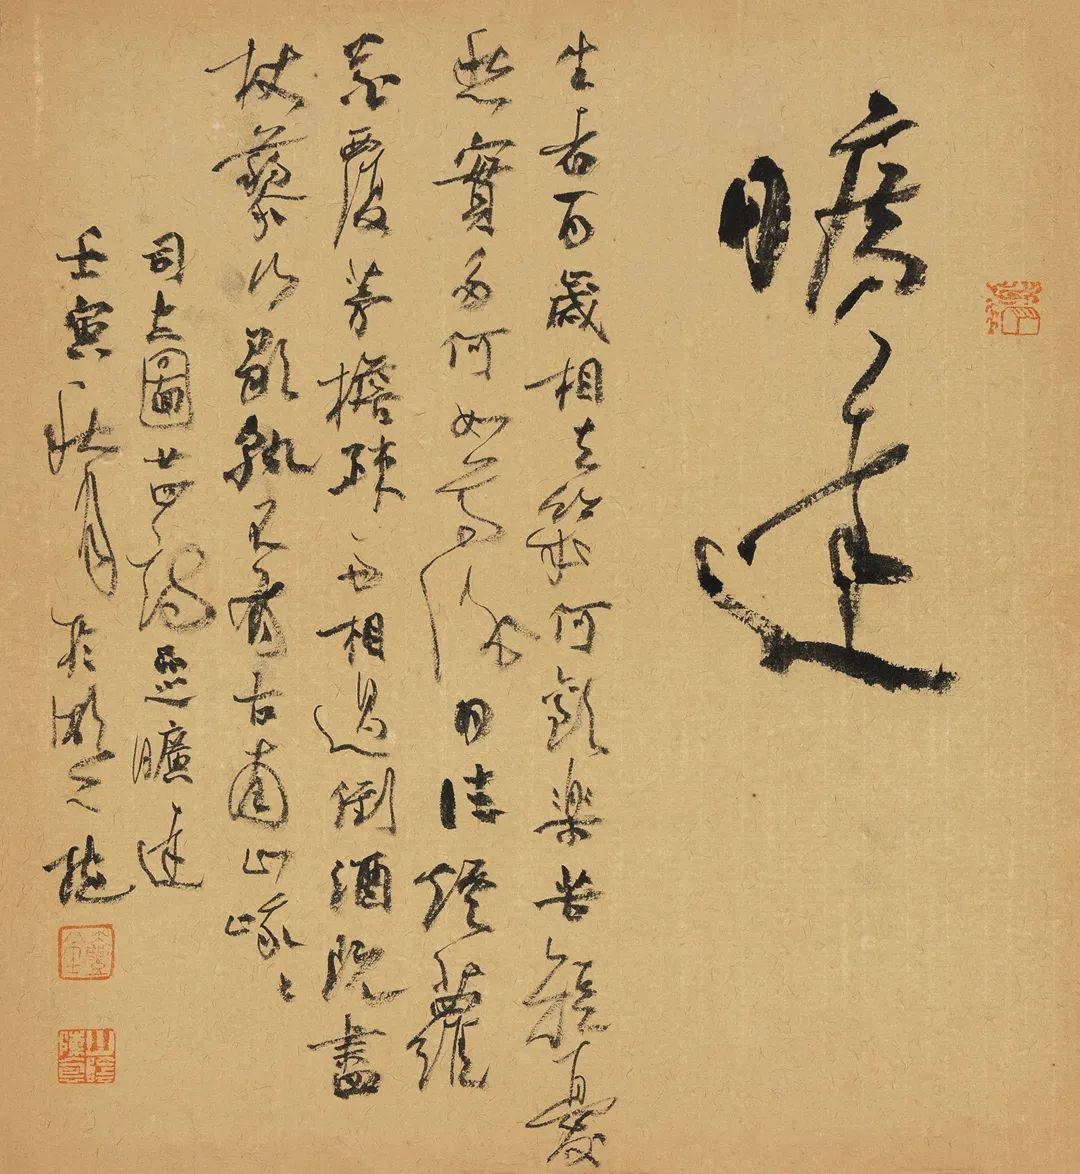 曠達
生者百歲相去幾何歡樂苦短憂
愁實多何如尊酒日往煙蘿
花覆茅檐疎雨相過倒酒既盡
杖藜行歌孰不有古南山峨〻
司空圖廿四詩品之曠達
壬寅秋月於